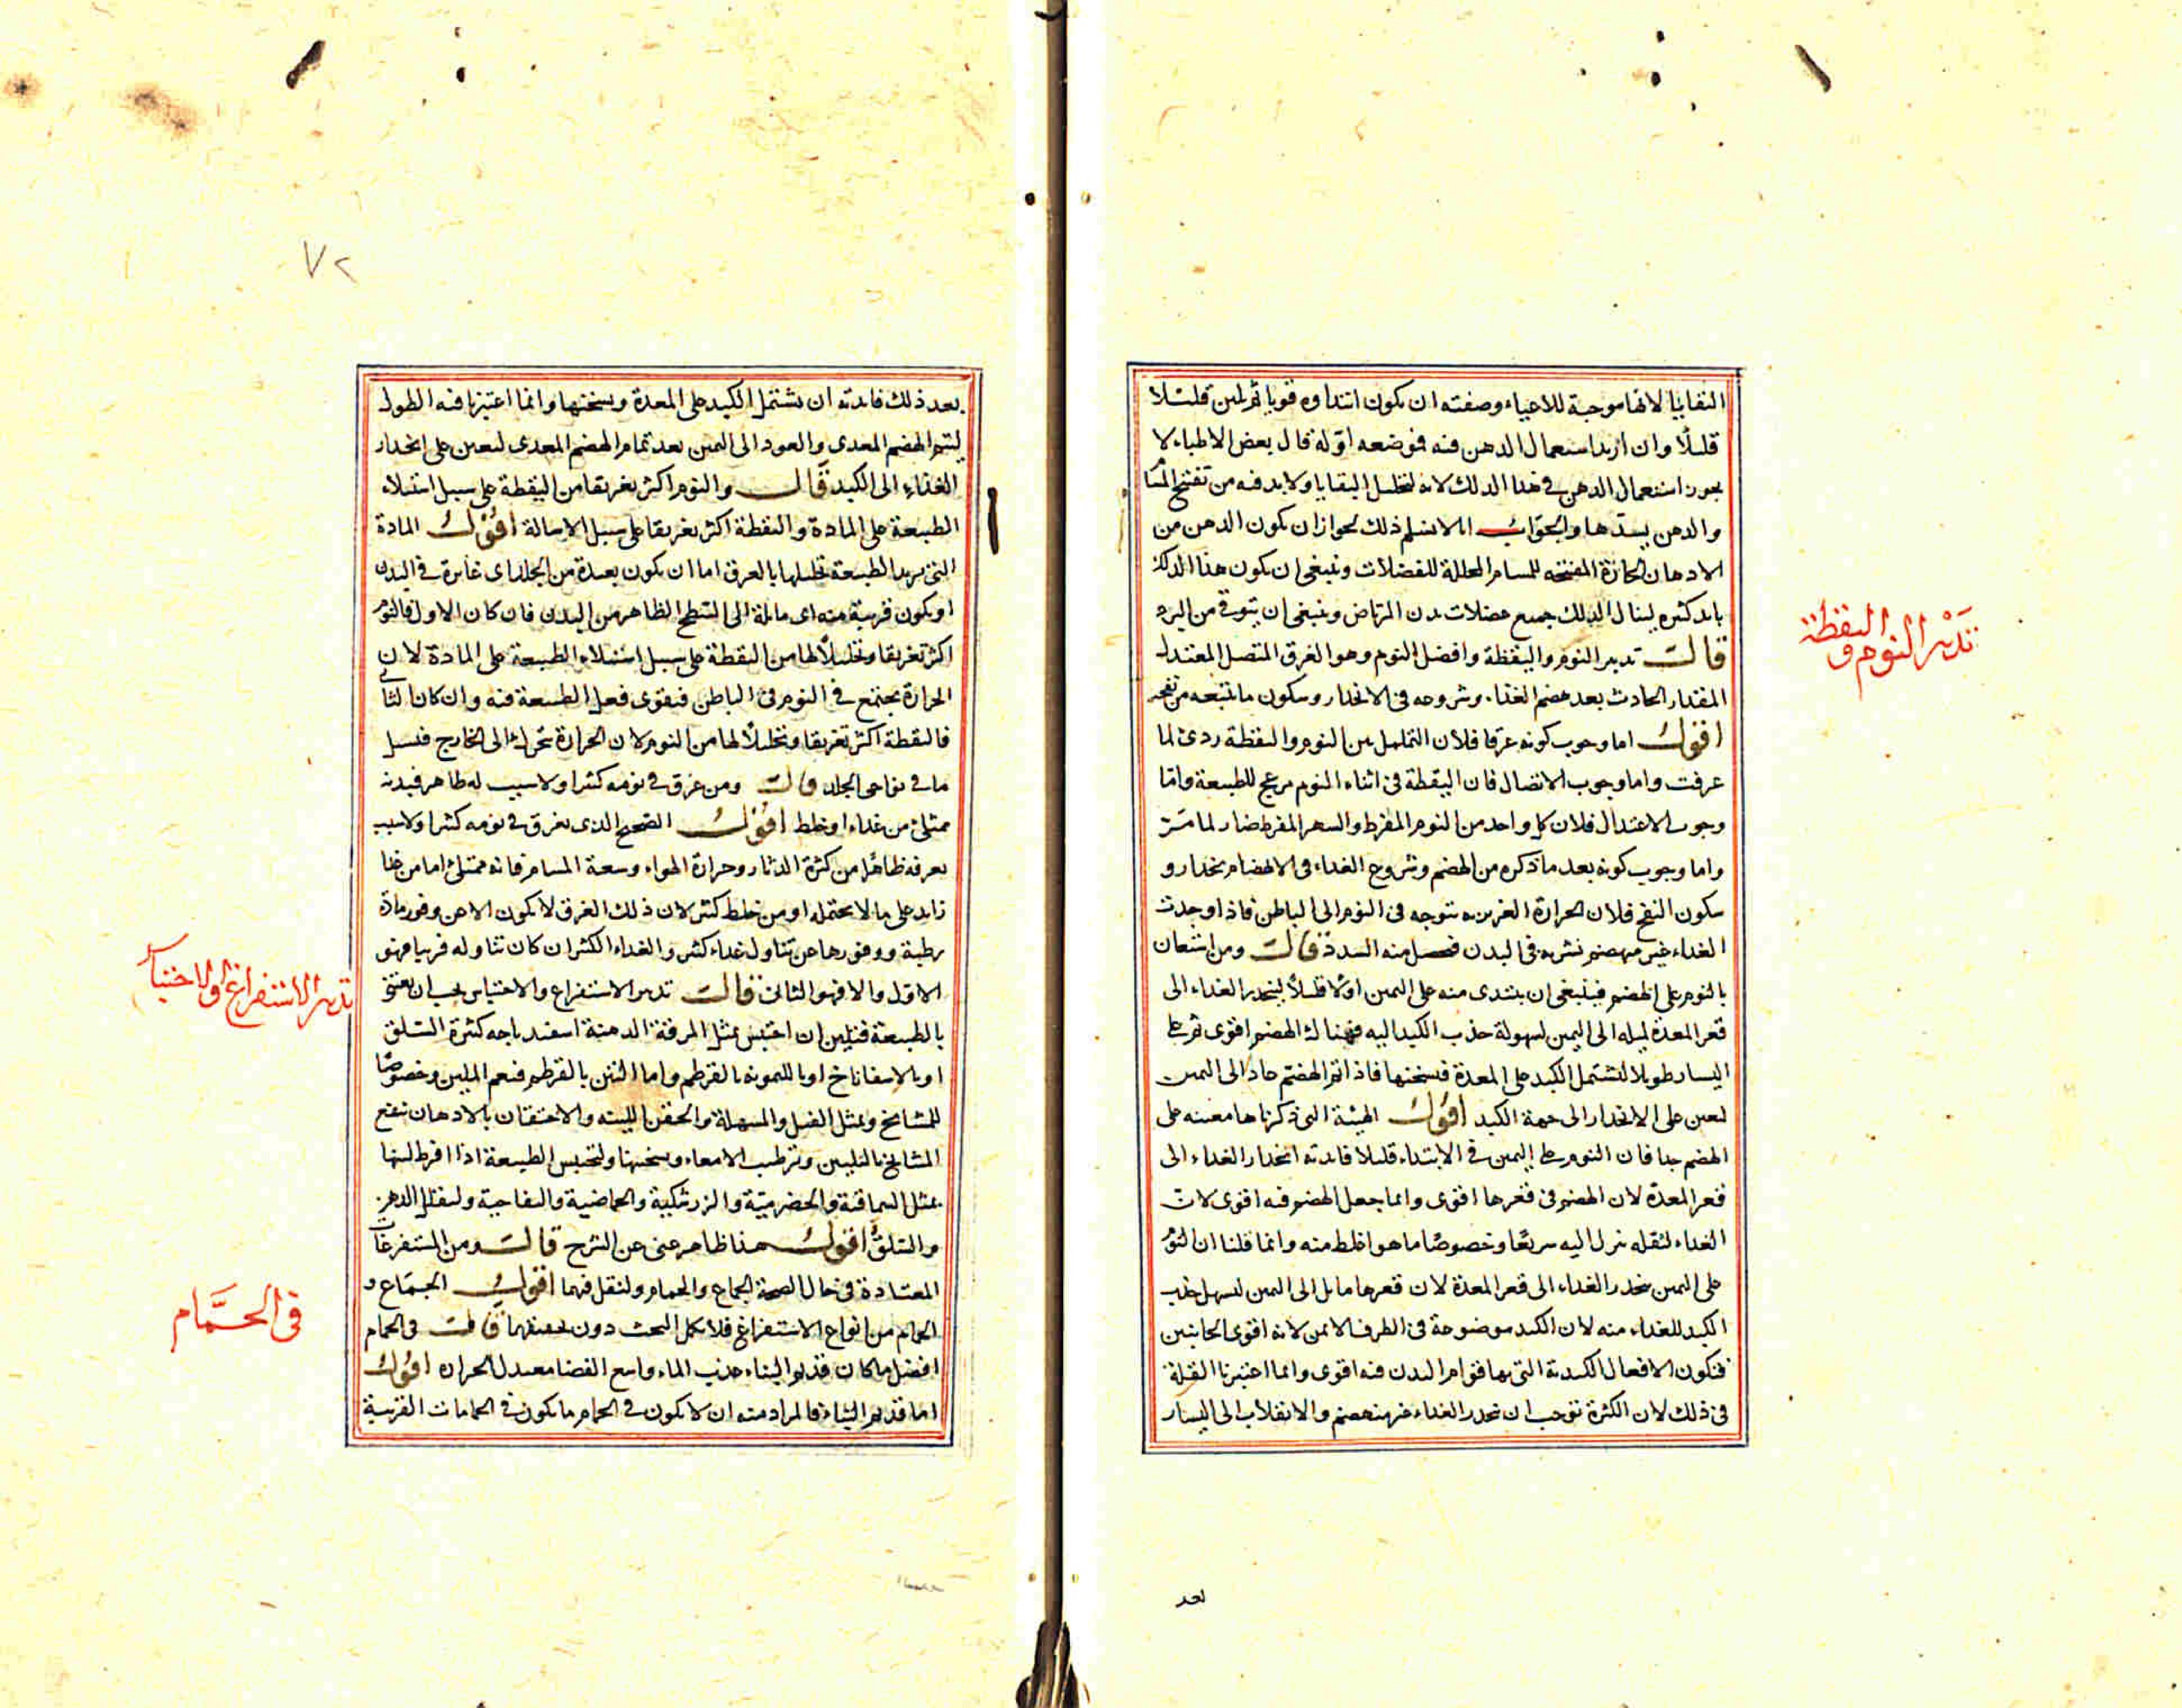 البقايا لانها موجبة للاعياء وصفته ان يكون ابتداوه قويا ثم يلين قليلا
قليلا وان اريد استعمال الدهن فيه فوضعه اوله قال بعض الاطباء لا
يجوز استعمال الدهن في هذا الدلك لانه لتحليل البقايا ولا بد فيه من تفتيح المسا
والدهن يسدها والجواب انا لا نسلم ذلك لجواز ان يكون الدهن من
الادهان الحارة المفتحه للمسام المحللة للفضلات وينبغي ان يكون هذا الدلك
بايد كثيره لينال الدلك جميع عضلات بدن المرتاض وينبغي ان يتوقي من البرد
قالـــ تدبير النوم واليقظة وافضل النوم وهو الغرق المتصل المعتدل
المقدار الحادث بعد هضم الغذاء وشروعه في الانحدار وسكون ما يتبعه من نفخ
اقول اما وجوب كونه غرقا فلان التململ بين النوم واليقظة ردئ لما
عرفت واما وجوب الاتصال فان اليقظة في اثناء النوم مزعج للطبيعة واما
وجوب الاعتدال فلان كل واحد من النوم المفرط والسهر المفرط ضار لما مر
واما وجوب كونه بعد ما ذكره من الهضم وشروع الغداء في الانهضام بخدار و
سكون النفخ فلان الحرارة الغريزيه تتوجه في النوم الى الباطن فاذا وجدت
الغداء غير منهضم نشرته في البدن فحصل منه السدة قالت ومن استعان
بالنوم على الهضم فينبغي ان يبتدي منه على اليمين اولا قليلا لينحدر الغداء الى
قعر المعدة لميله الى اليمين لسهولة جذب الكبد اليه فهناك الهضم اقوى ثم على
اليسار طويلا لتشتمل الكبد على المعدة فتسخنها فاذا تم الهضم عاد الى اليمين
ليعين على الانحدار الى جهة الكبد اقول الهيئة التي ذكرناها معينه على
الهضم جدا فان النوم على اليمين في الابتداء قليلا فايدته انحدار الغداء الى
قعر المعدة لان الهضم في قعرها اقوى وانما جعل الهضم فيه اقوى لان
الغداء لثقله ينزل اليه سريعا وخصوصا ما هو اغلظ منه وانما قلنا ان النوم
على اليمين يحدر الغداء الى قعر المعدة لان قعرها مايل الى اليمين ليسهل جذب
الكبد للغداء منه لان الكبد موضوعة في الطرف الايمن لانه اقوى الجانبين
فتكون الافعال الكبدية التي بها قوام البدن فيه اقوى وانما اعتبرنا القلة
في ذلك لان الكثرة توجب ان يحدر الغداء غير منهضم والانقلاب الى اليسار
بعد
تدبير النوم واليقظة
٧٢
بعد ذلك فايدته ان يشتمل الكبد على المعدة ويسخنها وانما اعتبرنا فيه الطول
ليتم الهضم المعدى والعود الى اليمين بعد تمام الهضم المعدى ليعين على انحدار
الغذاء الى الكبد قال والنوم اكثر تعريقا من اليقظة على سبيل استيلاء
الطبيعة على المادة واليقظة اكثر تعريقا على سبيل الاسالة اقول المادة
التي يريد الطبيعة تحليلها بالعرق اما ان يكون بعيدة من الجلد اى غايرة في البدن
او يكون قريبة منه اى مايلة الى السطح الظاهر من البدن فان كان الاول فالنوم
اكثر تعريقا وتحليلا لها من اليقظة على سبيل استيلاء الطبيعة على المادة لان
الحرارة يجتمع في النوم في الباطن فيقوى فعل الطبيعة فيه وان كان الثاني
فاليقظة اكثر تعريقا وتحليلا لها من النوم لان الحرارة تتحرك الى الخارج فتسيل
ما في نواحى الجلد قالت ومن عرق في نومه كثيرا ولا سبب له ظاهر فبدنه
ممتلئ من غذاء او خلط اقول الصحيح الذى يعرق في نومه كثيرا ولا سبب
يعرفه ظاهرا من كثرة الدثار وحرارة الهواء وسعة المسام فانه ممتلئ اما من غذا
زايد على ما لا يحتمله او من خلط كثير لان ذلك العرق لا يكون الا من وفور مادة
رطبة ووفورها من تناول غداء كثير والغداء الكثير ان كان تناوله قريبا فهو
الاول والا فهو الثاني قالت تدبير الاستفراغ والاحتباس يجب ان يعتني
بالطبيعة فتلين ان احتبس بمثل المرقة الدهنية اسفيدباجه كثيرة السلق
او بالاسفاناخ او بالليمونيه بالقرطم واما التين بالقرطم فنعم الملين وخصوصا
للمشايخ وبمثل الفتل والمسهلة والحقن اللينه والاحتقان بالادهان ينفع
المشايخ بالتليين وترطيب الامعاء وتسخينها ولتحبس الطبيعة اذا افرط لينها
بمثل السماقية والحضرمية والزرشكية والحماضية والتفاحية وليقلل الدهن
والسلق اقول هذا ظاهر غني عن الشرح قالت ومن المستفرغات
المعتادة في حال الصحة الجماع والحمام ولنقل فيهما اقول الجماع و
الحمام من انواع الاستفراغ فلا يكمل البحث دون تحقيقهما قالت في الحمام
افضل ما كان قديم البناء عذب الماء واسع الفضا معتدل الحراره اقول
اما قديم البناء فالمراد منه ان لا يكون في الحمام ما يكون في الحمامات القريبة
تدبير الاستفراغ والاحتباس
في الحمَّام